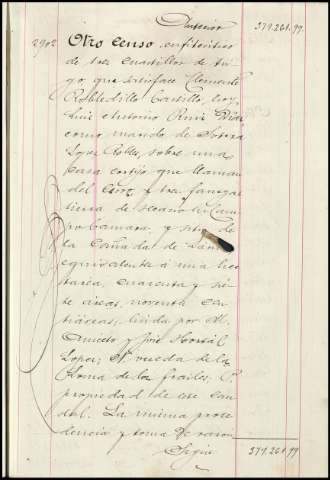 Anterior 379.261.99
2902 Otro Censo, enfiteútico
de tres cuartillos de tri-
go, que satisface Clemente
Robledillo Castillo, hoy,
Luis Antonio Ruiz
como marido de
Lopez Robles, sobre una
casa cortijo, que llaman
del y tres fanegas
tierra de secano
y sitio de
la Cañada de
equivalente á una hec-
tarea, cuarenta y sie-
te áreas, noventa cen-
tiáreas; linda por M.
Aniceto y José
Lopez; N. vereda de la
Loma de los frailes, C.
propiedad de este cau-
dal. La misma proce-
dencia y toma de razon
Sigue 379.261.99